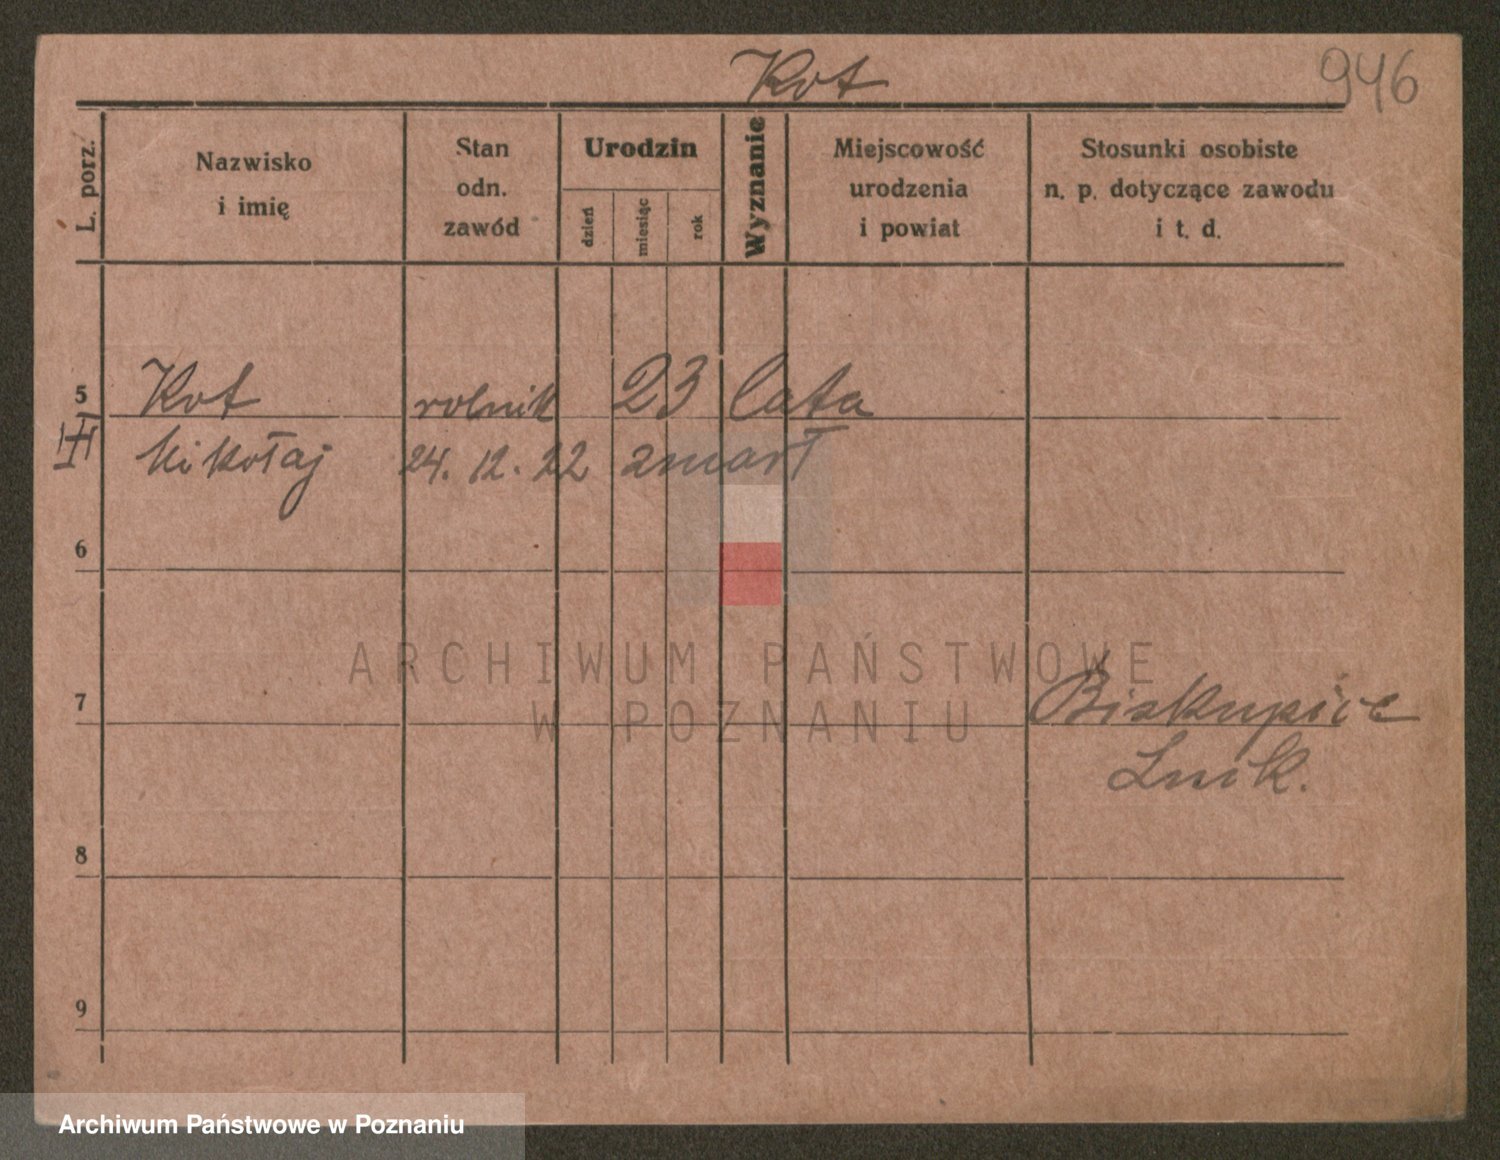 Kot
946
L. porz.
Nazwisko
i imię
Stan
odn.
zawód
Urodzin
dzień
miesiąc
rok
Wyznanie
Miejscowość
urodzenia
i powiat
Stosunki osobiste
n. p. dotyczące zawodu
i t. d.
5
Kot rolnik 23 lata
Mikołaj 24. 12. 22 zmarł
6
7
Biskupice
8
9
ARCHIWUM PAŃSTWOWE
W POZNANIU
Archiwum Państwowe w Poznaniu